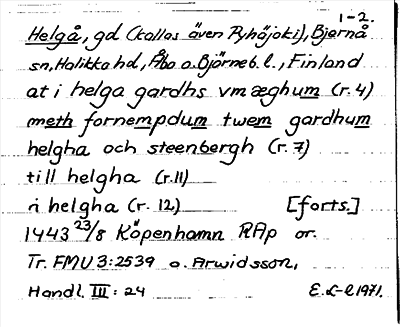 1-2.
Helgå, gd (kallas även Pyhäjoki), Bjernå
sn, Halikko hd, Åbo o. Björneb. l., Finland
at i helga gardhs vmæghum (r. 4)
meth fornempdum twem gardhum
helgha och steenbergh (r. 7)
till helgha (r. 11)
ri helgha (r. 12) [forts.]
1443 23/8 Köpenhamn RAp or.
Tr. FMU 3:2539 o. Arwidsson,
Handl. III: 24 E. L-l 1971.